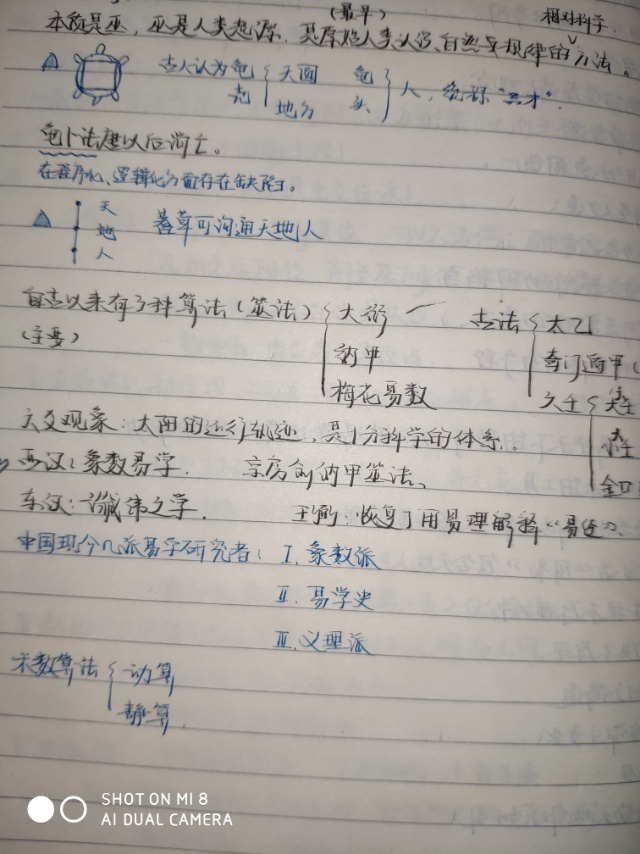 (最早) 相对科学
本质是巫，巫是人类起源，是原始人类认识自然界规律的方法。
古人认为龟壳 天圆 龟 人，统称“三才”。
地方 头
龟卜法唐以后消亡。
在程序化、逻辑化方面存在缺陷。
天
地 蓍草可沟通天地人
人
自古以来有3种算法(筮法) 大衍 古法 太乙
(主要) 纳甲 奇门遁甲(
梅花易数 六壬 大壬
六爻观象：太阳的运行轨迹，是十分科学的体系。 小壬
西汉：象数易学. 京房创纳甲筮法、 金口
东汉：谶纬之学. 王弼：恢复了用易理解释“易经”、
中国现今几派易学研究者： Ⅰ. 象数派
Ⅱ. 易学史
Ⅲ. 义理派
术数算法 动算
静算.
SHOT ON MI 8
AI DUAL CAMERA